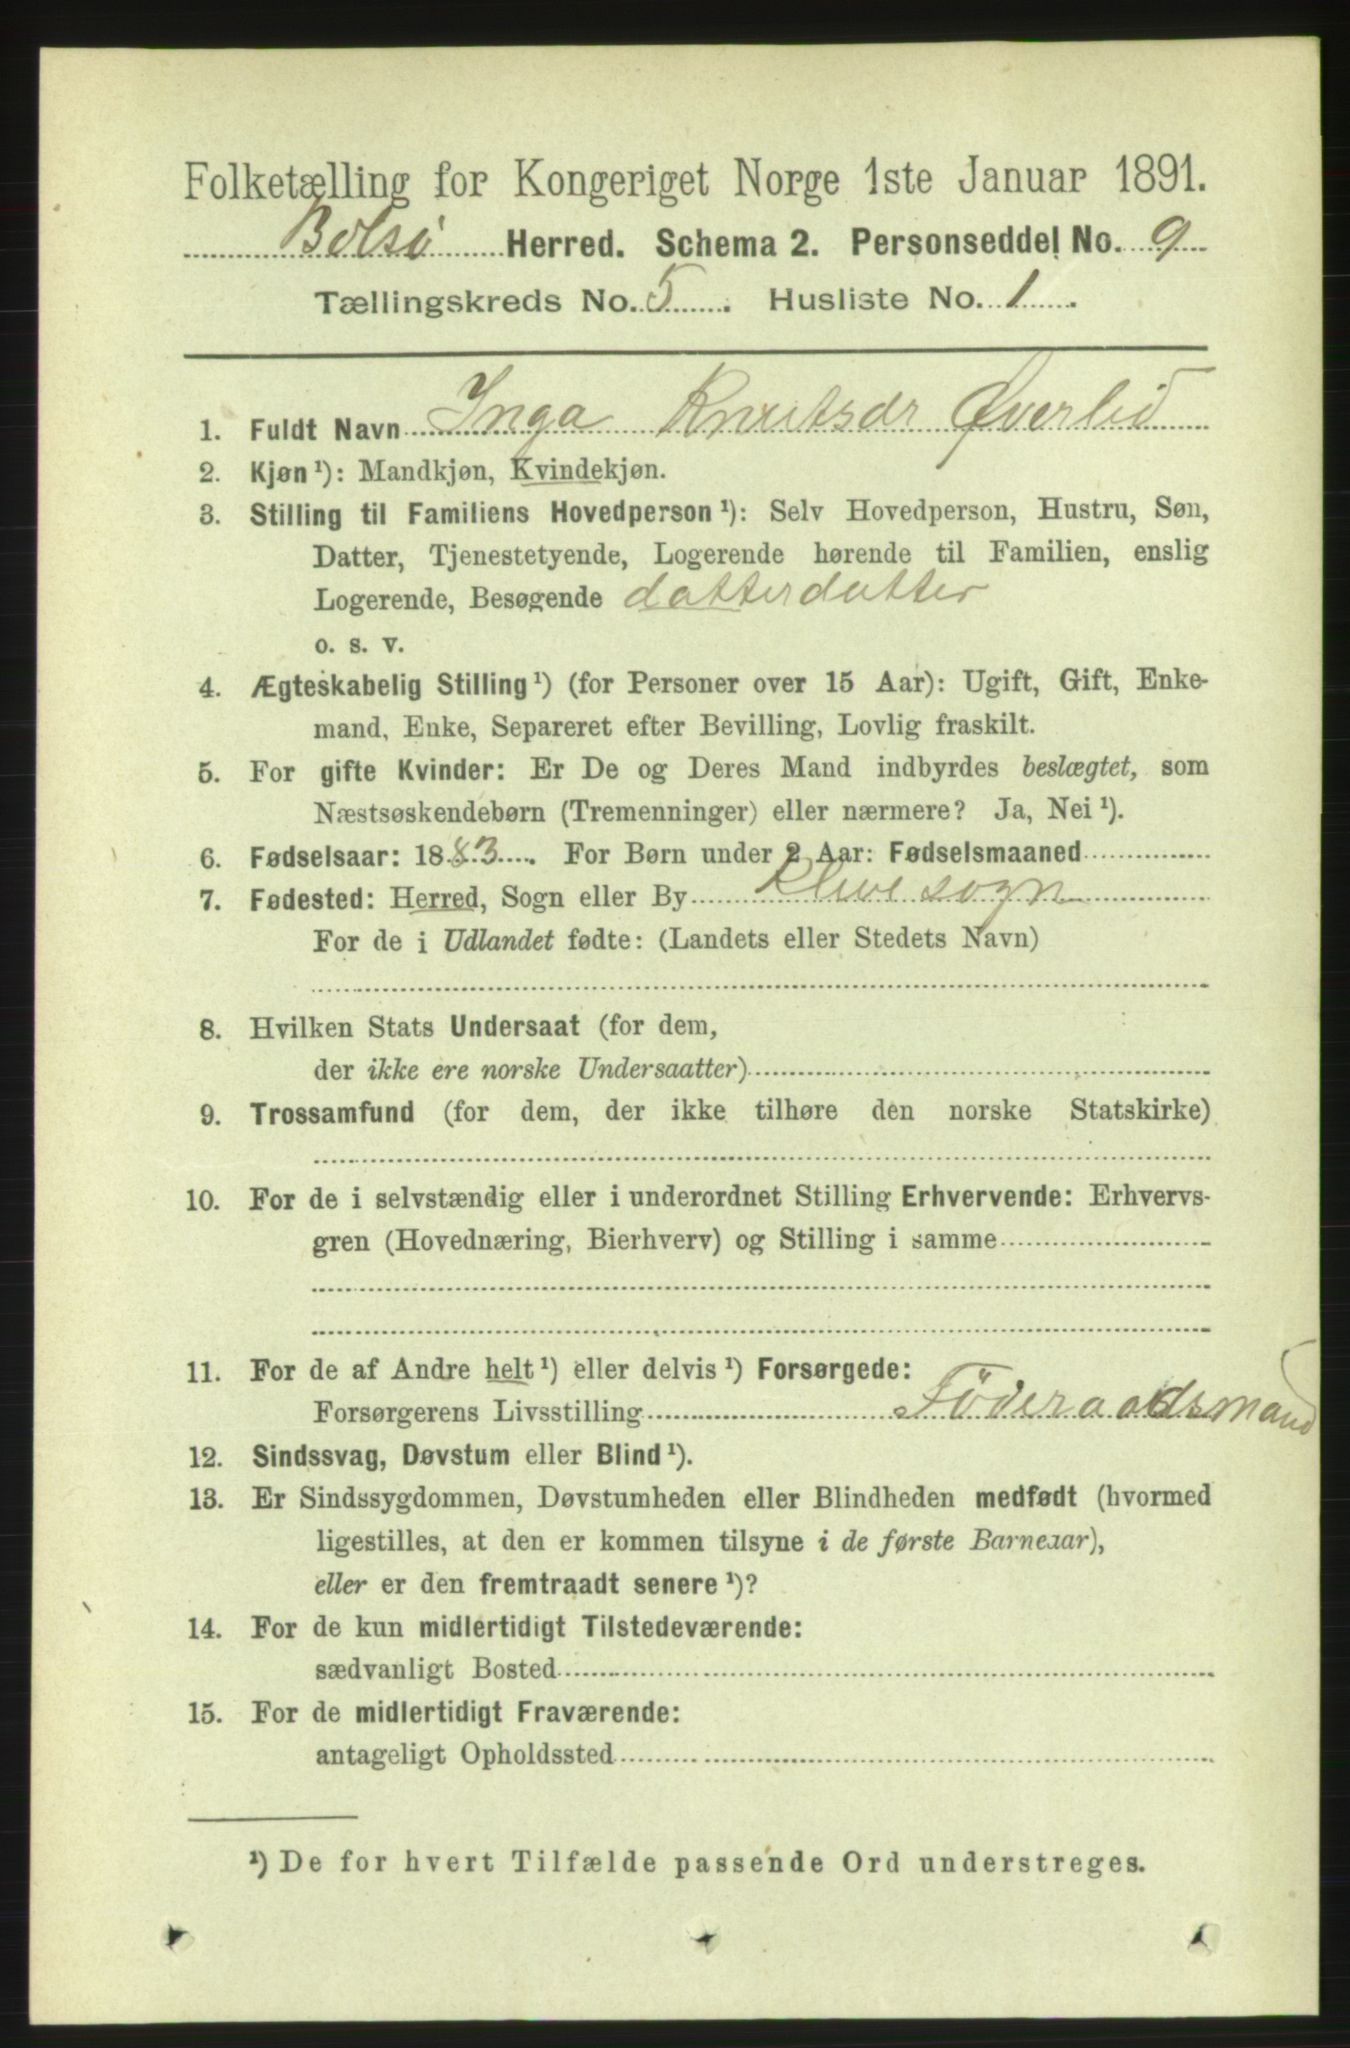 Folketælling for Kongeriget Norge 1ste Januar 1891.
Bolsø Herred. Schema 2. Personseddel No. 9
Tællingskreds No. 5. Husliste No. 1.
1. Fuldt Navn Inga Knutsdr Øverlid
2. Kjøn ¹): Mandkjøn, Kvindekjøn.
3. Stilling til Familiens Hovedperson ¹): Selv Hovedperson, Hustru, Søn,
Datter, Tjenestetyende, Logerende hørende til Familien, enslig
Logerende, Besøgende datterdatter
o. s. v.
4. Ægteskabelig Stilling ¹) (for Personer over 15 Aar): Ugift, Gift, Enke-
mand, Enke, Separeret efter Bevilling, Lovlig fraskilt.
5. For gifte Kvinder: Er De og Deres Mand indbyrdes beslægtet, som
Næstsøskendebørn (Tremenninger) eller nærmere? Ja, Nei ¹).
6. Fødselsaar: 1883. For Børn under 2 Aar: Fødselsmaaned
7. Fødested: Herred, Sogn eller By Kleve sogn
For de i Udlandet fødte: (Landets eller Stedets Navn)
8. Hvilken Stats Undersaat (for dem,
der ikke ere norske Undersaatter)
9. Trossamfund (for dem, der ikke tilhøre den norske Statskirke)
10. For de i selvstændig eller i underordnet Stilling Erhvervende: Erhvervs-
gren (Hovednæring, Bierhverv) og Stilling i samme
11. For de af Andre helt ¹) eller delvis ¹) Forsørgede:
Forsørgerens Livsstilling Föderaadsmand
12. Sindssvag, Døvstum eller Blind ¹).
13. Er Sindssygdommen, Døvstumheden eller Blindheden medfødt (hvormed
ligestilles, at den er kommen tilsyne i de første Barneaar),
eller er den fremtraadt senere ¹)?
14. For de kun midlertidigt Tilstedeværende:
sædvanligt Bosted
15. For de midlertidigt Fraværende:
antageligt Opholdssted
¹) De for hvert Tilfælde passende Ord understreges.